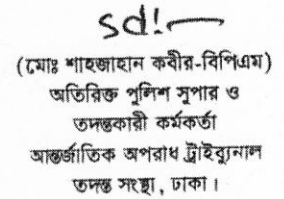 sd/-
(মোঃ শাহজাহান কবীর-বিপিএম)
অতিরিক্ত পুলিশ সুপার ও
তদন্তকারী কর্মকর্তা
আন্তর্জাতিক অপরাধ ট্রাইব্যুনাল
তদন্ত সংস্থা, ঢাকা।